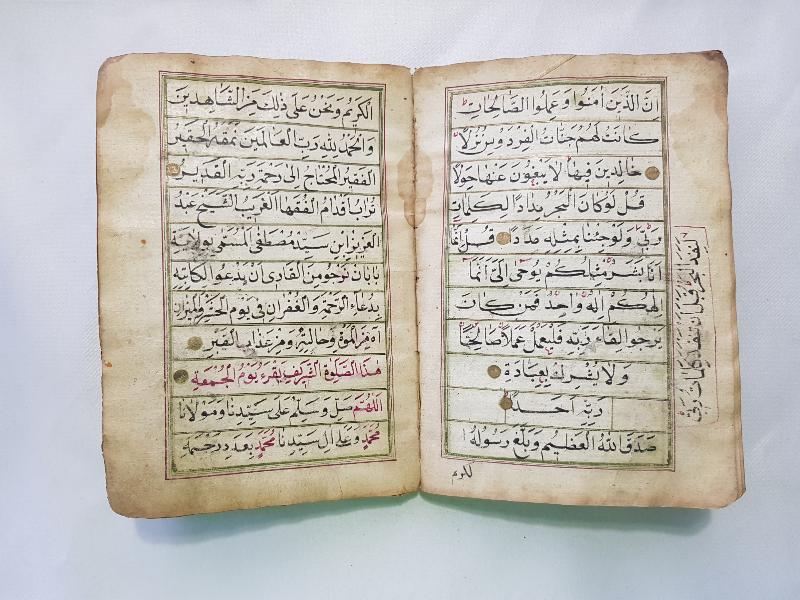 اِنَّ الَّذِينَ اٰمَنُوا وَعَمِلُوا الصَّالِحَاتِ
كَانَتْ لَهُمْ جَنَّاتُ الْفِرْدَوْسِ نُزُلًا
خَالِدِينَ فِيهَا لَا يَبْغُونَ عَنْهَا حِوَلًا
قُلْ لَوْ كَانَ الْبَحْرُ مِدَادًا لِكَلِمَاتِ
رَبِّي وَلَوْ جِئْنَا بِمِثْلِهِ مَدَدًا قُلْ اِنَّمَا
اَنَا بَشَرٌ مِثْلُكُمْ يُوحٰى اِلَيَّ اَنَّمَا
اِلٰهُكُمْ اِلٰهٌ وَاحِدٌ فَمَنْ كَانَ
يَرْجُوا لِقَاءَ رَبِّهِ فَلْيَعْمَلْ عَمَلًا صَالِحًا
وَلَا يُشْرِكْ بِعِبَادَةِ
رَبِّهِ اَحَدًا
صَدَقَ اللهُ الْعَظِيمُ وَبَلَّغَ رَسُولُهُ
الكريم
لنفد البحر قبل ان تنفد كلمات ربي
الْكَرِيمُ وَنَحْنُ عَلٰى ذٰلِكَ مِنَ الشَّاهِدِينَ
وَالْحَمْدُ لِلّٰهِ رَبِّ الْعَالَمِينَ نَمَقَهُ الْحَقِيرُ
الْفَقِيرُ الْمُحْتَاجُ اِلٰى رَحْمَةِ رَبِّهِ الْقَدِيرِ
تُرَابُ اَقْدَامِ الْفُقَهَا الْغَرِيبُ الشَّيْخُ عَبْدُ
الْعَزِيزِ اِبْنِ سَيِّدْ مُصْطَفٰى الْمُسَمّٰى بِوِلَايَةِ
بَابَانْ نَرْجُو مِنَ الْقَارِي اَنْ يَدْعُوَ الْكَاتِبَهُ
بِدُعَاءِ الرَّحْمَةِ وَالْغُفْرَانِ فِي يَوْمِ الْحَشْرِ وَالْمِيزَانِ
آهْ مِنَ الْمَوْتِ وَحَالَتِهِ وَمِنْ عَذَابِ الْقَبْرِ
هٰذَا الصَّلٰوةُ الشَّرِيفِ يُقْرَءُ يَوْمَ الْجُمُعَةِ
اَللّٰهُمَّ صَلِّ وَسَلِّمْ عَلٰى سَيِّدِنَا وَمَوْلَانَا
مُحَمَّدٍ وَعَلٰى اٰلِ سَيِّدِنَا مُحَمَّدٍ بِعَدَدِ رَحْمَةِ